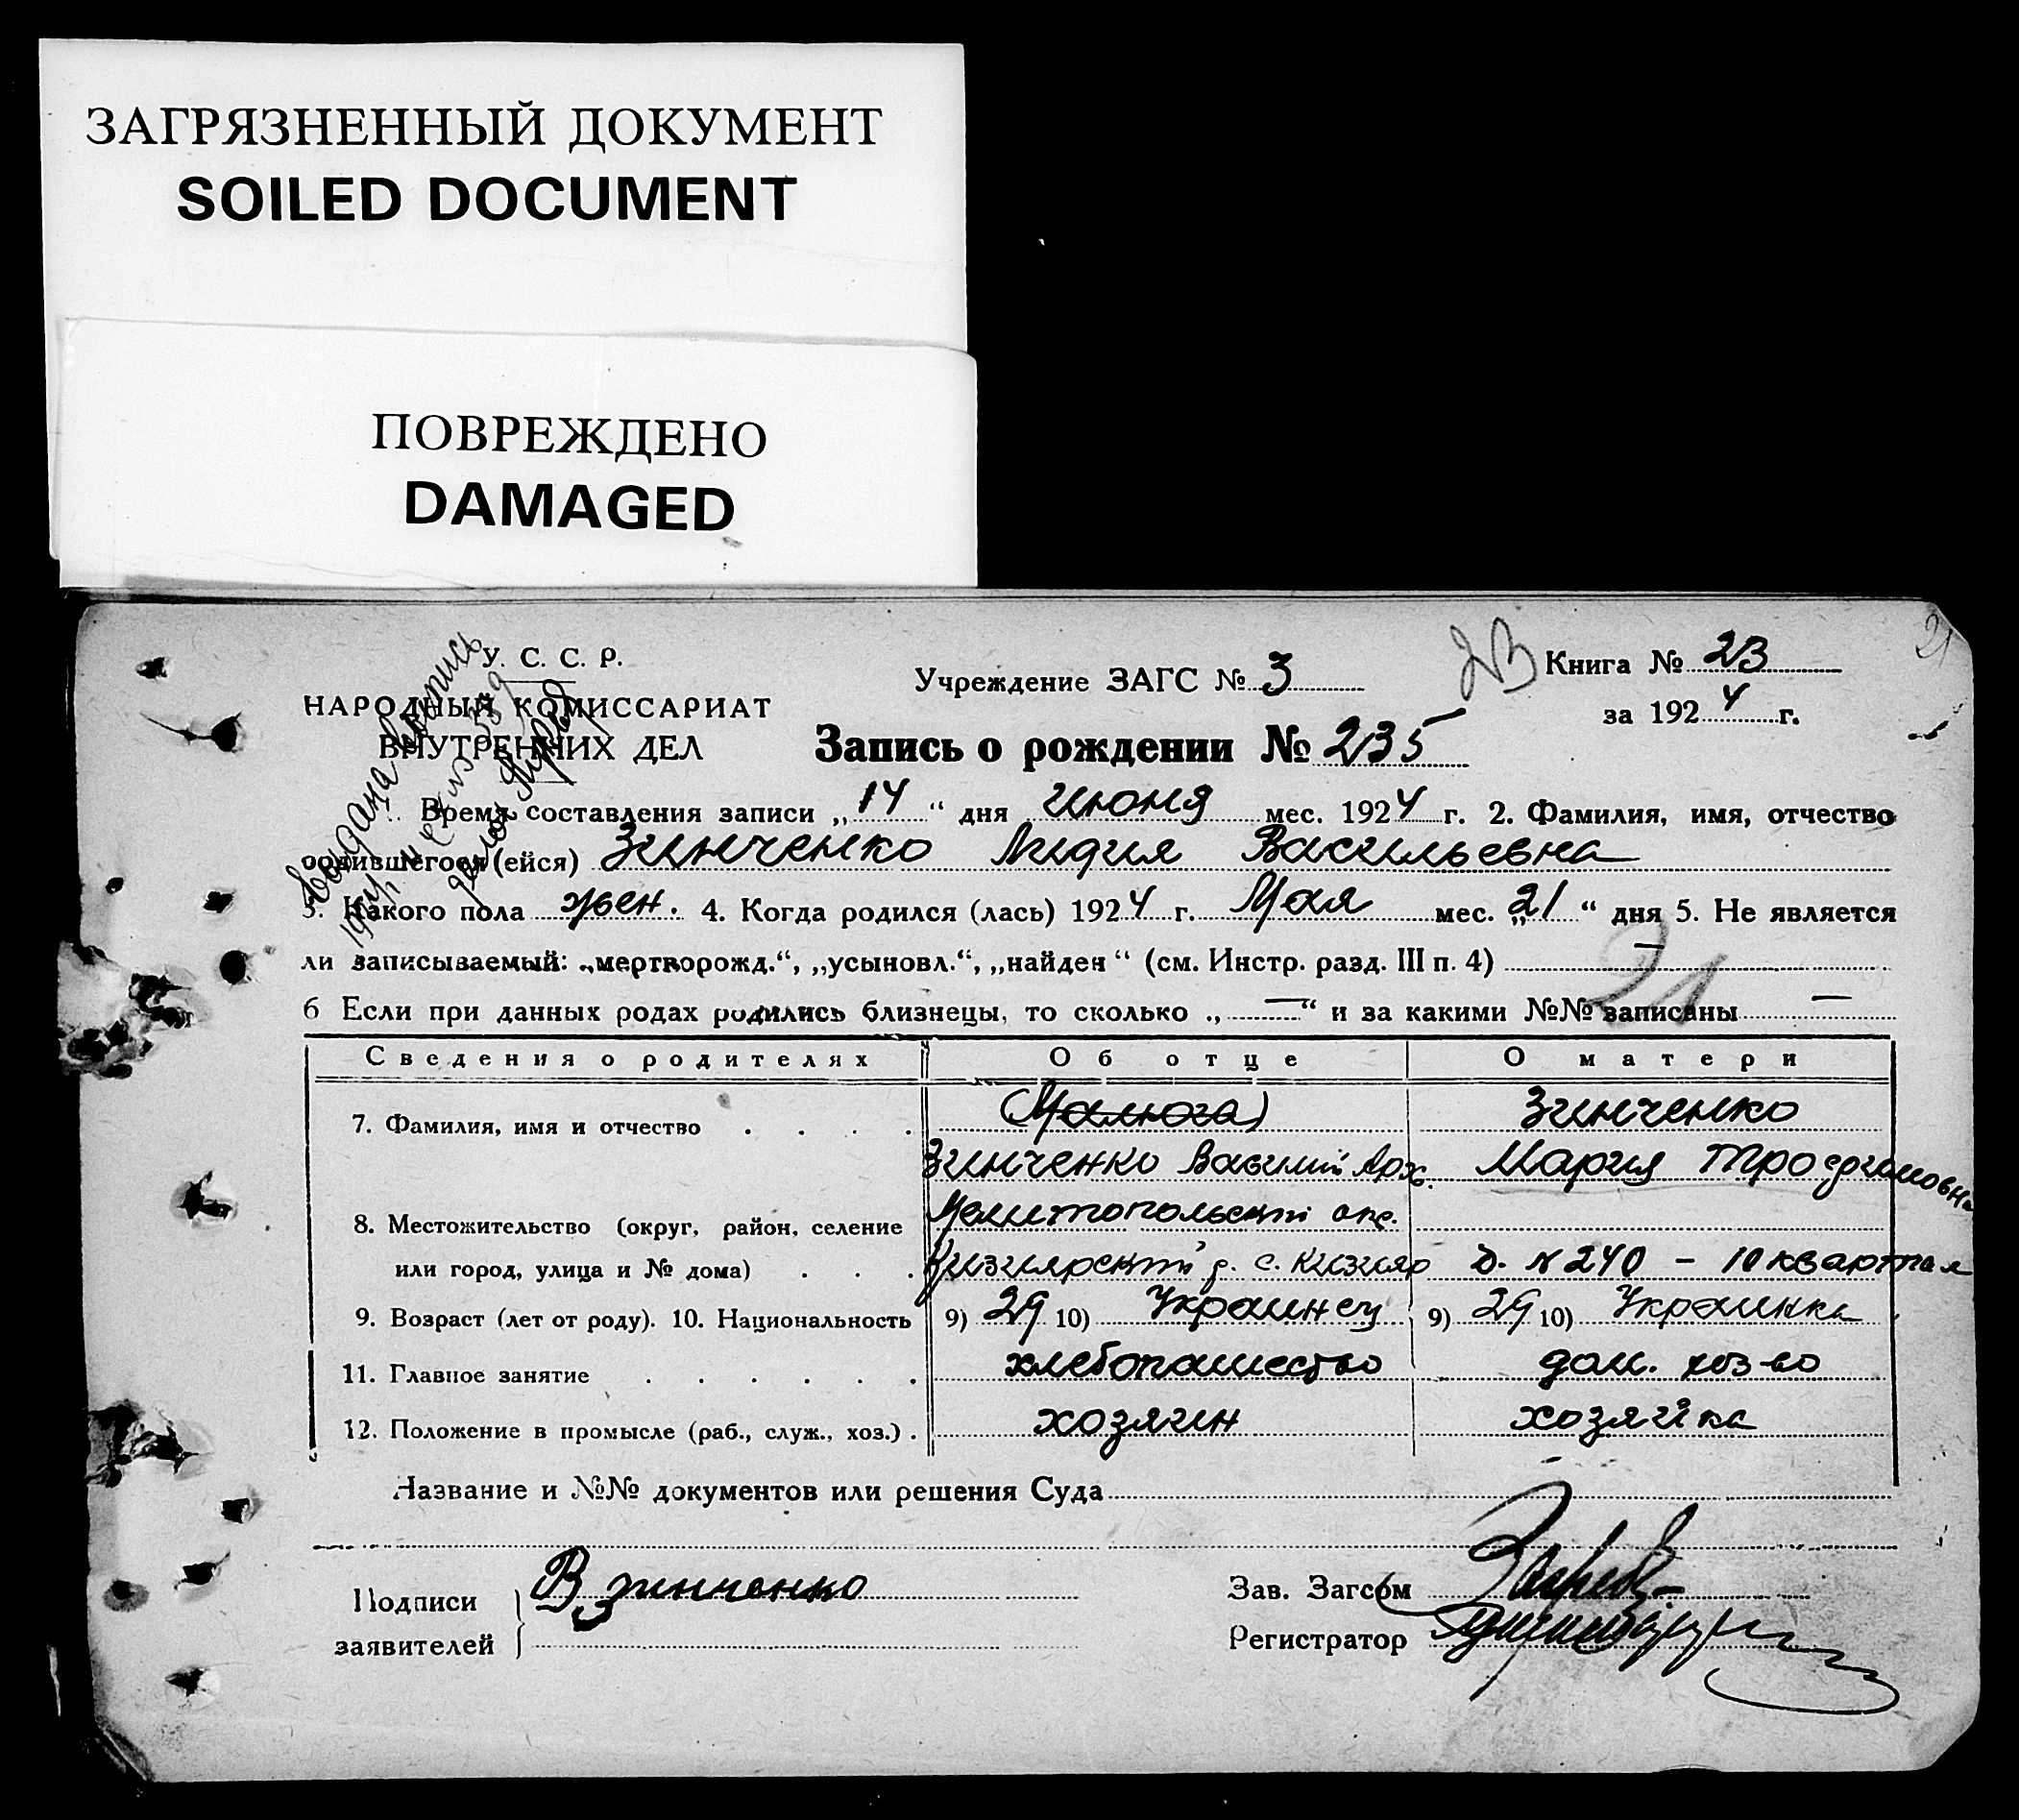 ЗАГРЯЗНЕННЫЙ ДОКУМЕНТ
SOILED DOCUMENT
ПОВРЕЖДЕНО
DAMAGED
21
У. С. С. Р.
НАРОДНЫЙ КОМИССАРИАТ
ВНУТРЕННИХ ДЕЛ
Учреждение ЗАГС № 3
23
Книга № 23
за 1924 г.
Запись о рождении № 235
Время составления записи „14“ дня июня мес. 1924 г. 2. Фамилия, имя, отчество
родившегося (ейся) Зинченко Лидия Васильевна
3. Какого пола жен. 4. Когда родился (лась) 1924 г. Мая мес. „21“ дня 5. Не является
ли записываемый: „мертворожд.“, „усыновл.“, „найден“ (см. Инстр. разд. III п. 4) —
21
6 Если при данных родах родились близнецы, то сколько „—“ и за какими №№ записаны —
Сведения о родителях Об отце О матери
7. Фамилия, имя и отчество (Малюга) Зинченко
Зинченко Василий Арх. Мария Трофимовна
8. Местожительство (округ, район, селение Мелитопольский окр.
или город, улица и № дома) Кизиярский р. с. Кизияр д. № 240 – 10 квартал
9. Возраст (лет от роду). 10. Национальность 9) 29 10) Украинец 9) 29 10) Украинка
11. Главное занятие хлебопашество дом. хоз-во
12. Положение в промысле (раб., служ., хоз.) хозяин хозяйка
Название и №№ документов или решения Суда
Подписи
заявителей
В Зинченко
Зав. Загсом
Регистратор